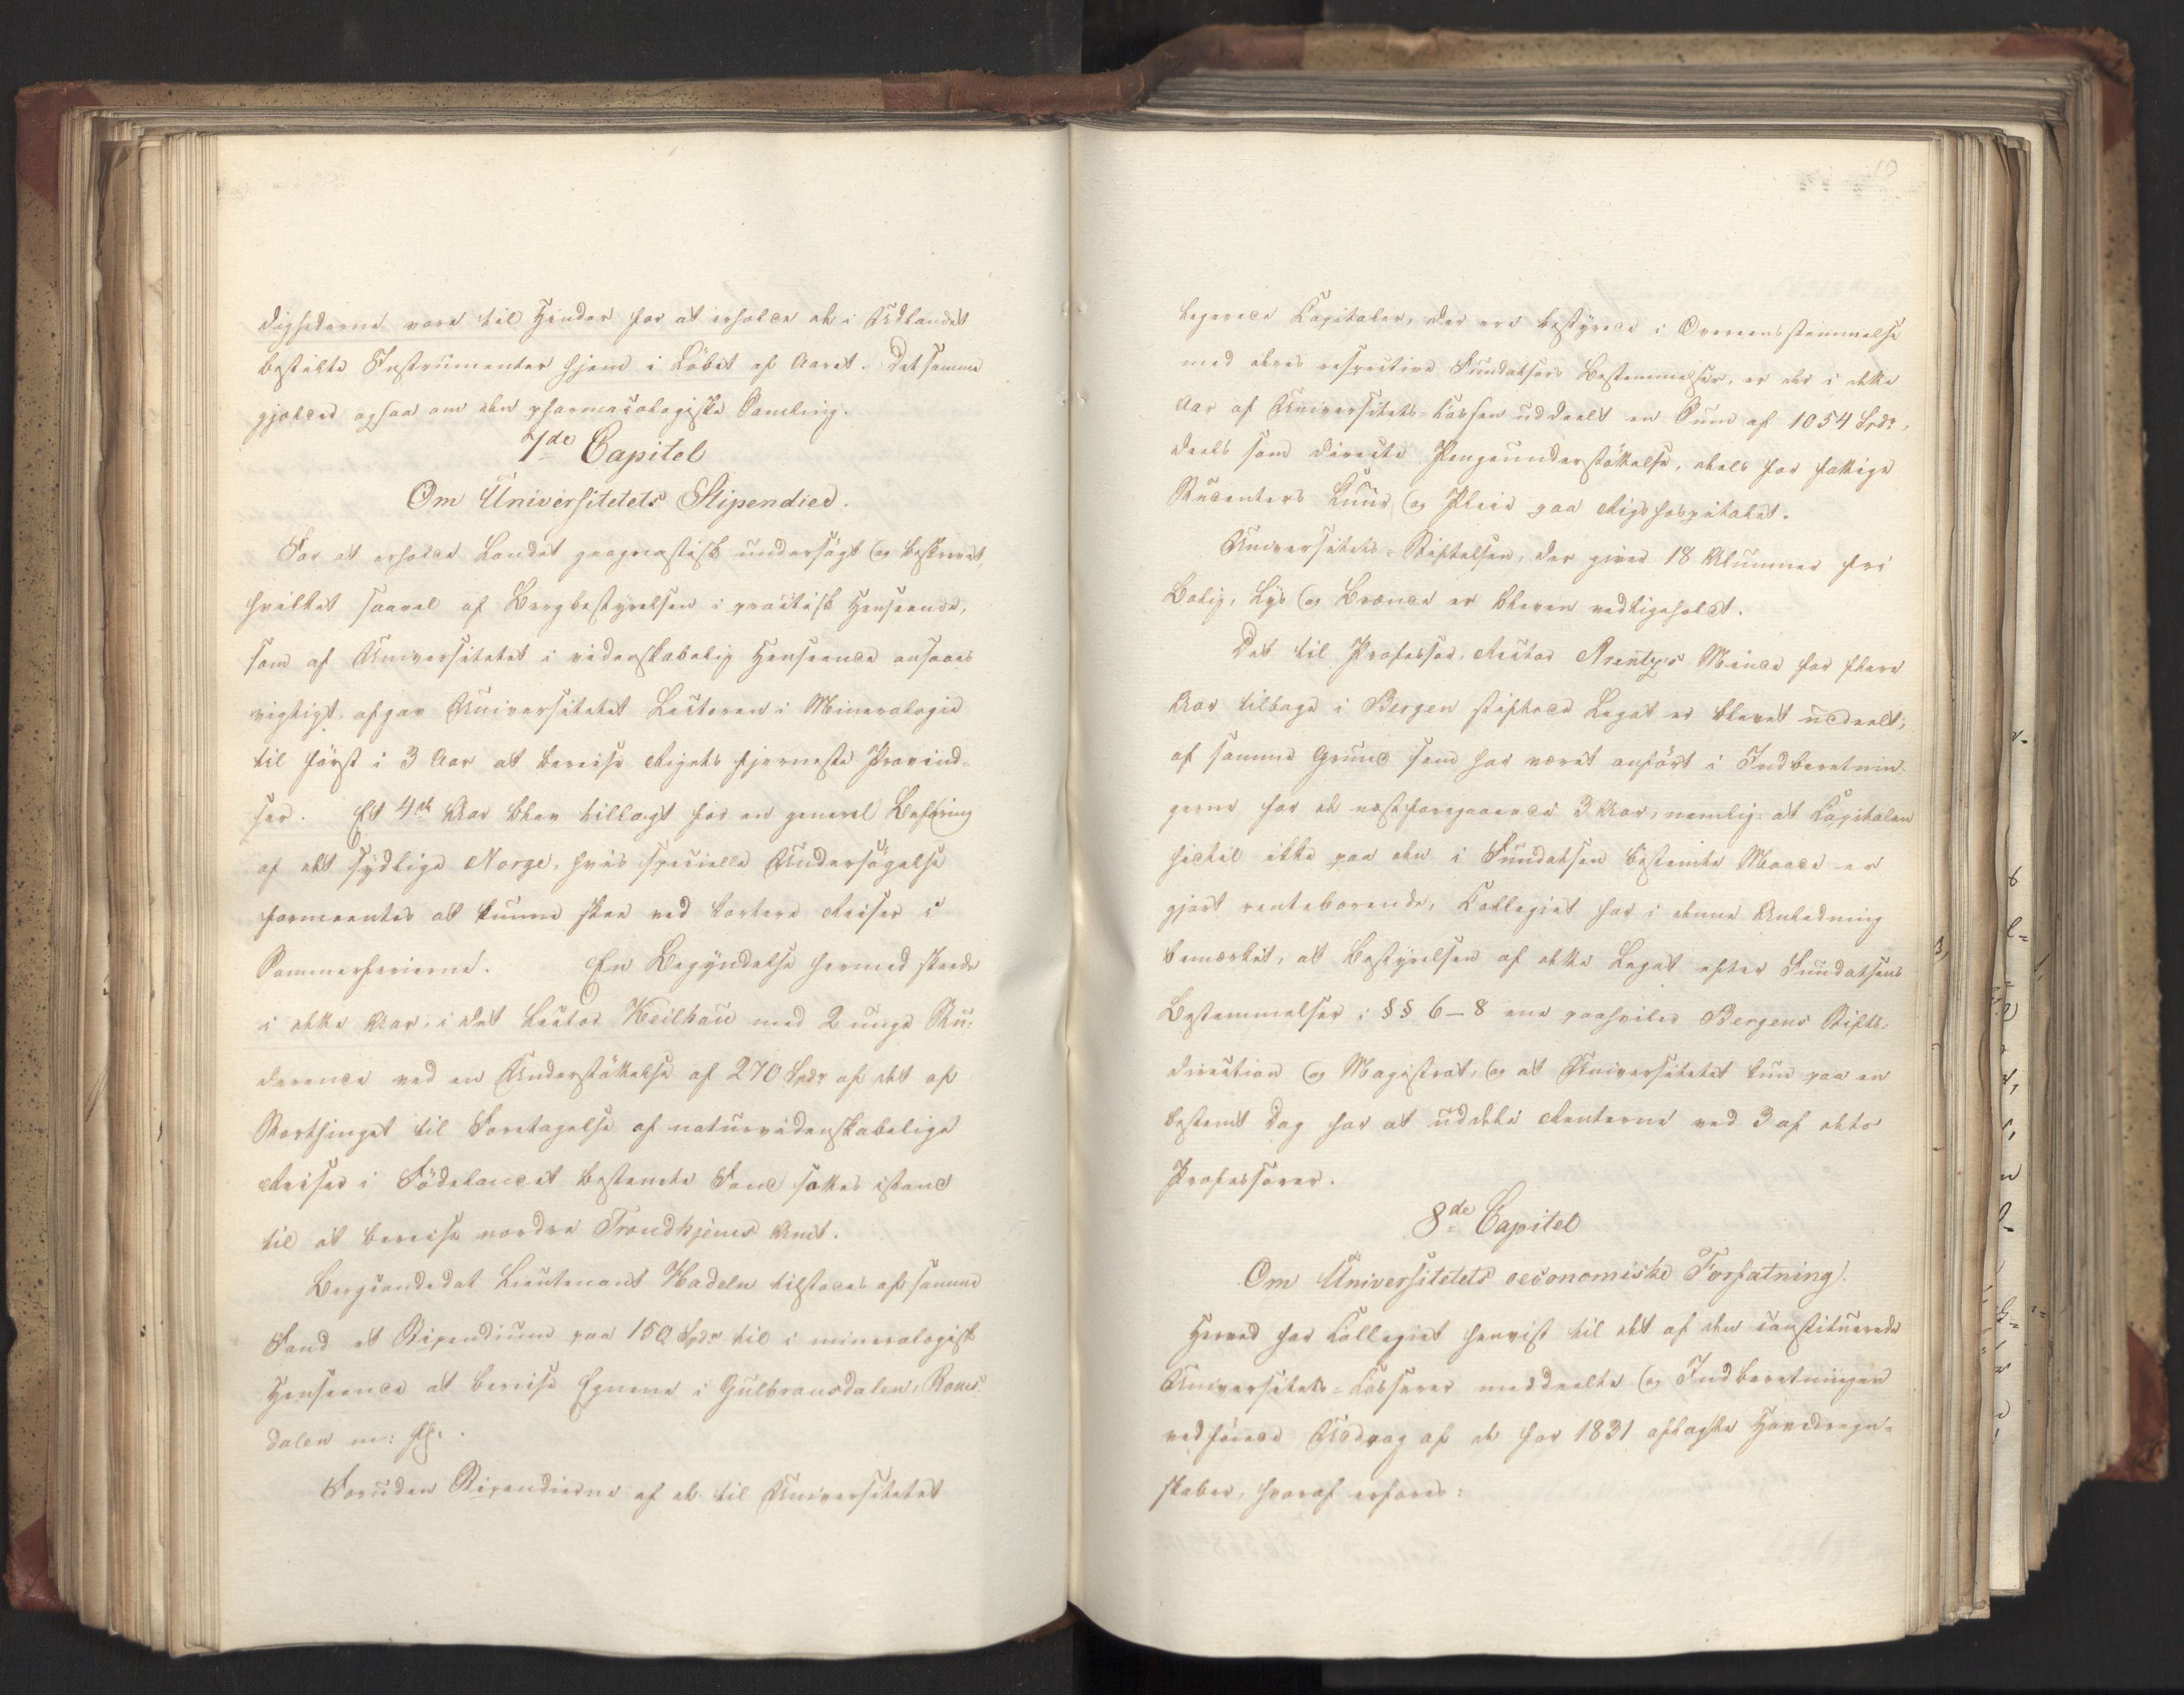 dighederne vare til Hinder for at erholde de i Udlandet
bestilte Instrumenter hjem i Löbet af Aaret. Det samme
gjælder ogsaa om den pharmacologiske Samling.
7de Capitel
Om Universitetets Stipendier.
For at erholde Landet geognostisk undersögt og beskrevet,
hvilket saavel af Bergbestyrelsen i practisk Henseende,
som af Universitetet i videnskabelig Henseende ansaaes
vigtigt, afgav Universitetet Lectoren i Mineralogie
til först i 3 Aar at bereise Rigets fjerneste Provind-
ser. Et 4de Aar blev tillagt for en general Befaring
af det sydlige Norge, hvis specielle Undersögelse
formeentes at kunne skee ved kortere Reiser i
Sommerferierne. En Begyndelse hermed skeede
i dette Aar, i det Lector Keilhau med 2 unge Stu-
derende ved en Understöttelse af 270 Spdr af det af
Storthinget til Foretagelse af naturvidenskabelige
Reiser i Födelandet bestemte Fond sattes istand
til at bereise nordre Trondhjems Amt.
Bergcandidat Lieutenant Hadeln tilstodes af samme
Fond et Stipendium paa 150 Spdr til i mineralogisk
Henseende at bereise Egnene i Gulbransdalen, Roms-
dalen m: fl:.
Foruden Stipendierne af de til Universitetet
10
legerede Capitaler, der ere bestyrede i Overeensstemmelse
med deres respective Fundatsers Bestemmelser, er der i dette
Aar af Universitets-Cassen uddeelt en Sum af 1054 Spdr,
deels som directe Pengeunderstöttelse, deels for fattige
Studenters Kuur og Pleie paa Rigshospitalet.
Universitets-Stiftelsen, der giver 18 Alumner fri
Bolig, Lys og Brænde er bleven vedligeholdt.
Det til Professor, Rector Arentz's Minde for flere
Aar tilbage i Bergen stiftede Legat er blevet uddeelt;
af samme Grund som har været anfört i Indberetnin-
gerne for de næstforegaaende 3 Aar, nemlig: at Capitalen
hidtil ikke paa den i Fundatsen bestemte Maade er
gjort rentebærende, Collegiet har i denne Anledning
bemærket, at Bestyrelsen af dette Legat efter Fundatsens
Bestemmelser i §§ 6-8 ene paahviler Bergens Stifts-
direction og Magistrat, og at Universitetet kun paa en
bestemt Dag har at uddele Renterne ved 3 af dets
Professorer.
8de Capitel
Om Universitetets oeconomiske Forfatning.
Herved har Collegiet henvist til det af den constituerede
Universitets-Casserer meddeelte og Indberetningen
vedföiede Uddrag af de for 1831 aflagte Hovedregn-
skaber, hvoraf erfares: